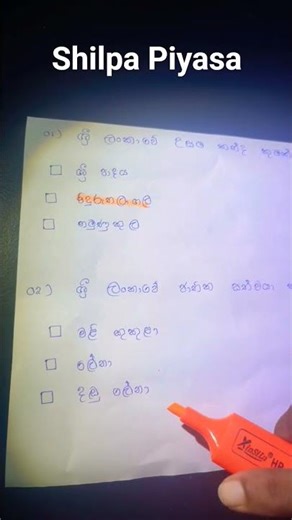 Shilpa Piyasa
01) ශ්‍රී ලංකාවේ උසම කන්ද කුමක්
ශ්‍රී පාදය
පිදුරුතලාගල
නමුණුකුල
02) ශ්‍රී ලංකාවේ ජාතික පක්ෂියා
වළි කුකුළා
මල්තා
දළු මල්තා
HP